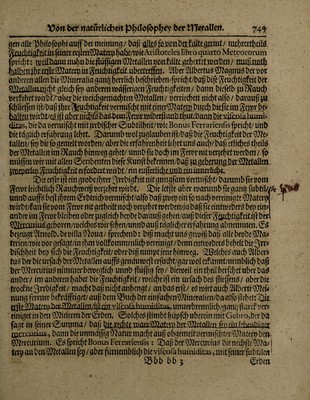 Von der natürlichen Philosophey der Metallen. 749
gen alle Philosophi auff der meinung / daß alles so von der kälte geriñt / mehrertheils
Feuchtigkeit in seiner ersten Matery habe / wie Aristoteles libro quarto Meteororum
spricht: weil dann nuhn die flüssigen Metallen von kälte gehertet werden / muß noth
halben jhr erste Matery in Feuchtigkeit übertreffen. Aber Albertus Magnus der vor
andern allen die Mineralia gantz herrlich beschrieben / spricht / daß diese Feuchtigkeit der
Metallen nicht gleich sey anderen wässerigen Feuchtigkeiten / dann dieselb zu Rauch
verkehrt wirdt / aber die noch geschmoltzenen Metallen / verriechen nicht also / darauß zu
schliessen ist daß jhr Feuchtigkeit vermischt mit einer Matery durch die sie im Fewr be-
halten wirdt / es ist aber nichts das dem Fewr widersteh thut / dann die viscosa humi-
ditas, die da vermischt ist mit jrrdischer Subtilheit / wie Bonus Ferrariensis spricht / und
die täglich erfahrung lehrt. Darumb wol zuglauben ist / daß die Feuchtigkeit der Me-
tallen / sey die so gemelt worden / aber die erfahrenheit lehrt uns auch / daß etliches theils
der Metallen im Rauch hinweg gehet / unnd sie doch im Fewr nit verzehrt werden / so
müssen wir mit allen Scribenten diese Kunst bekennen / daß zu geberung der Metallen
zweyerley Feuchtigkeit erfordert wirdt / ein eusserliche unnd ein innerliche.
Die erste ist ein grobes der jrrdischeit nit genugsam vermischt / darumb sie vom
Fewr leichtlich Rauchweiß verzehrt wirdt. Die letste aber warumb sie gantz subtil /
unnd auffs best jhrem Erdtrich vermischt / also daß zwo von so nach vereinigte Matery
wirdt / kan sie vom Fewr nit getheilt noch verzehrt werden / so daß sie eintweders bey ein-
ander im Fewr bleiben oder zugleich beyde darauß gehen / auß dieser Feuchtigkeit ist der
Mercurius geboren / welches wir sehen / unnd auß täglicher erfahrung abnemmen. Es
bezeugt Arnoldus de villa Nova / sprechendt: deß macht uns gwüß daß alle beyde Ma-
terien / wie vor gesagt / in jhm vollkommenlich vereinigt / denn entweders behelt die Jrr-
dischheit bey sich die Feuchtigkeit / oder diß nimpt jene hinweg. Welches auch Alber-
tus der die ursach der Metallen auffs genewest ersucht / gar wol erkennt / nemblich daß
der Mercurius nimmer beweglich unnd flüssig sey / dieweil ein theil herschet über das
ander / im anderen habe die Feuchtigkeit / welche ist ein ursach deß flüssens / aber die
trockne Jrrdischeit / macht daß nicht anhengt / an das erst / es wirdt auch Alberti Mei-
nung ferrner bekräfftiget / auß dem Buch der einfachen Mineralen / da also stehet: Die
erste Matery der Metallen ist ein viscosa humiditas, unverbrennlich / gantz starck ver-
einiget in den Minern der Erden. Solches stimbt hüpsch uberein mit Gebro, der da
sagt in seiner Summa / daß die rechte ware Matery der Metallen sey ein lebendiger
mercurius, dann die unmüssig Natur macht auß ohgemelt vermischter Matery den
Mercurium. Es spricht Bonus Ferrariensis: Daß der Mercurius die nechste Ma-
tery an den Metallen sey / aber fürnemblich die viscosa humiditas, mit seiner subtilen
Bbb bb 3 Erden